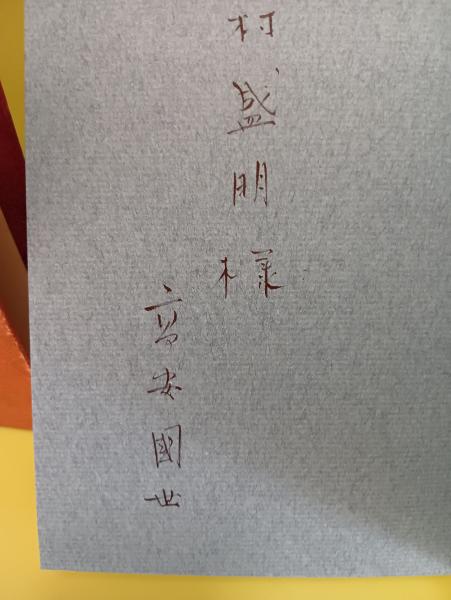 村盛明様
高安國世